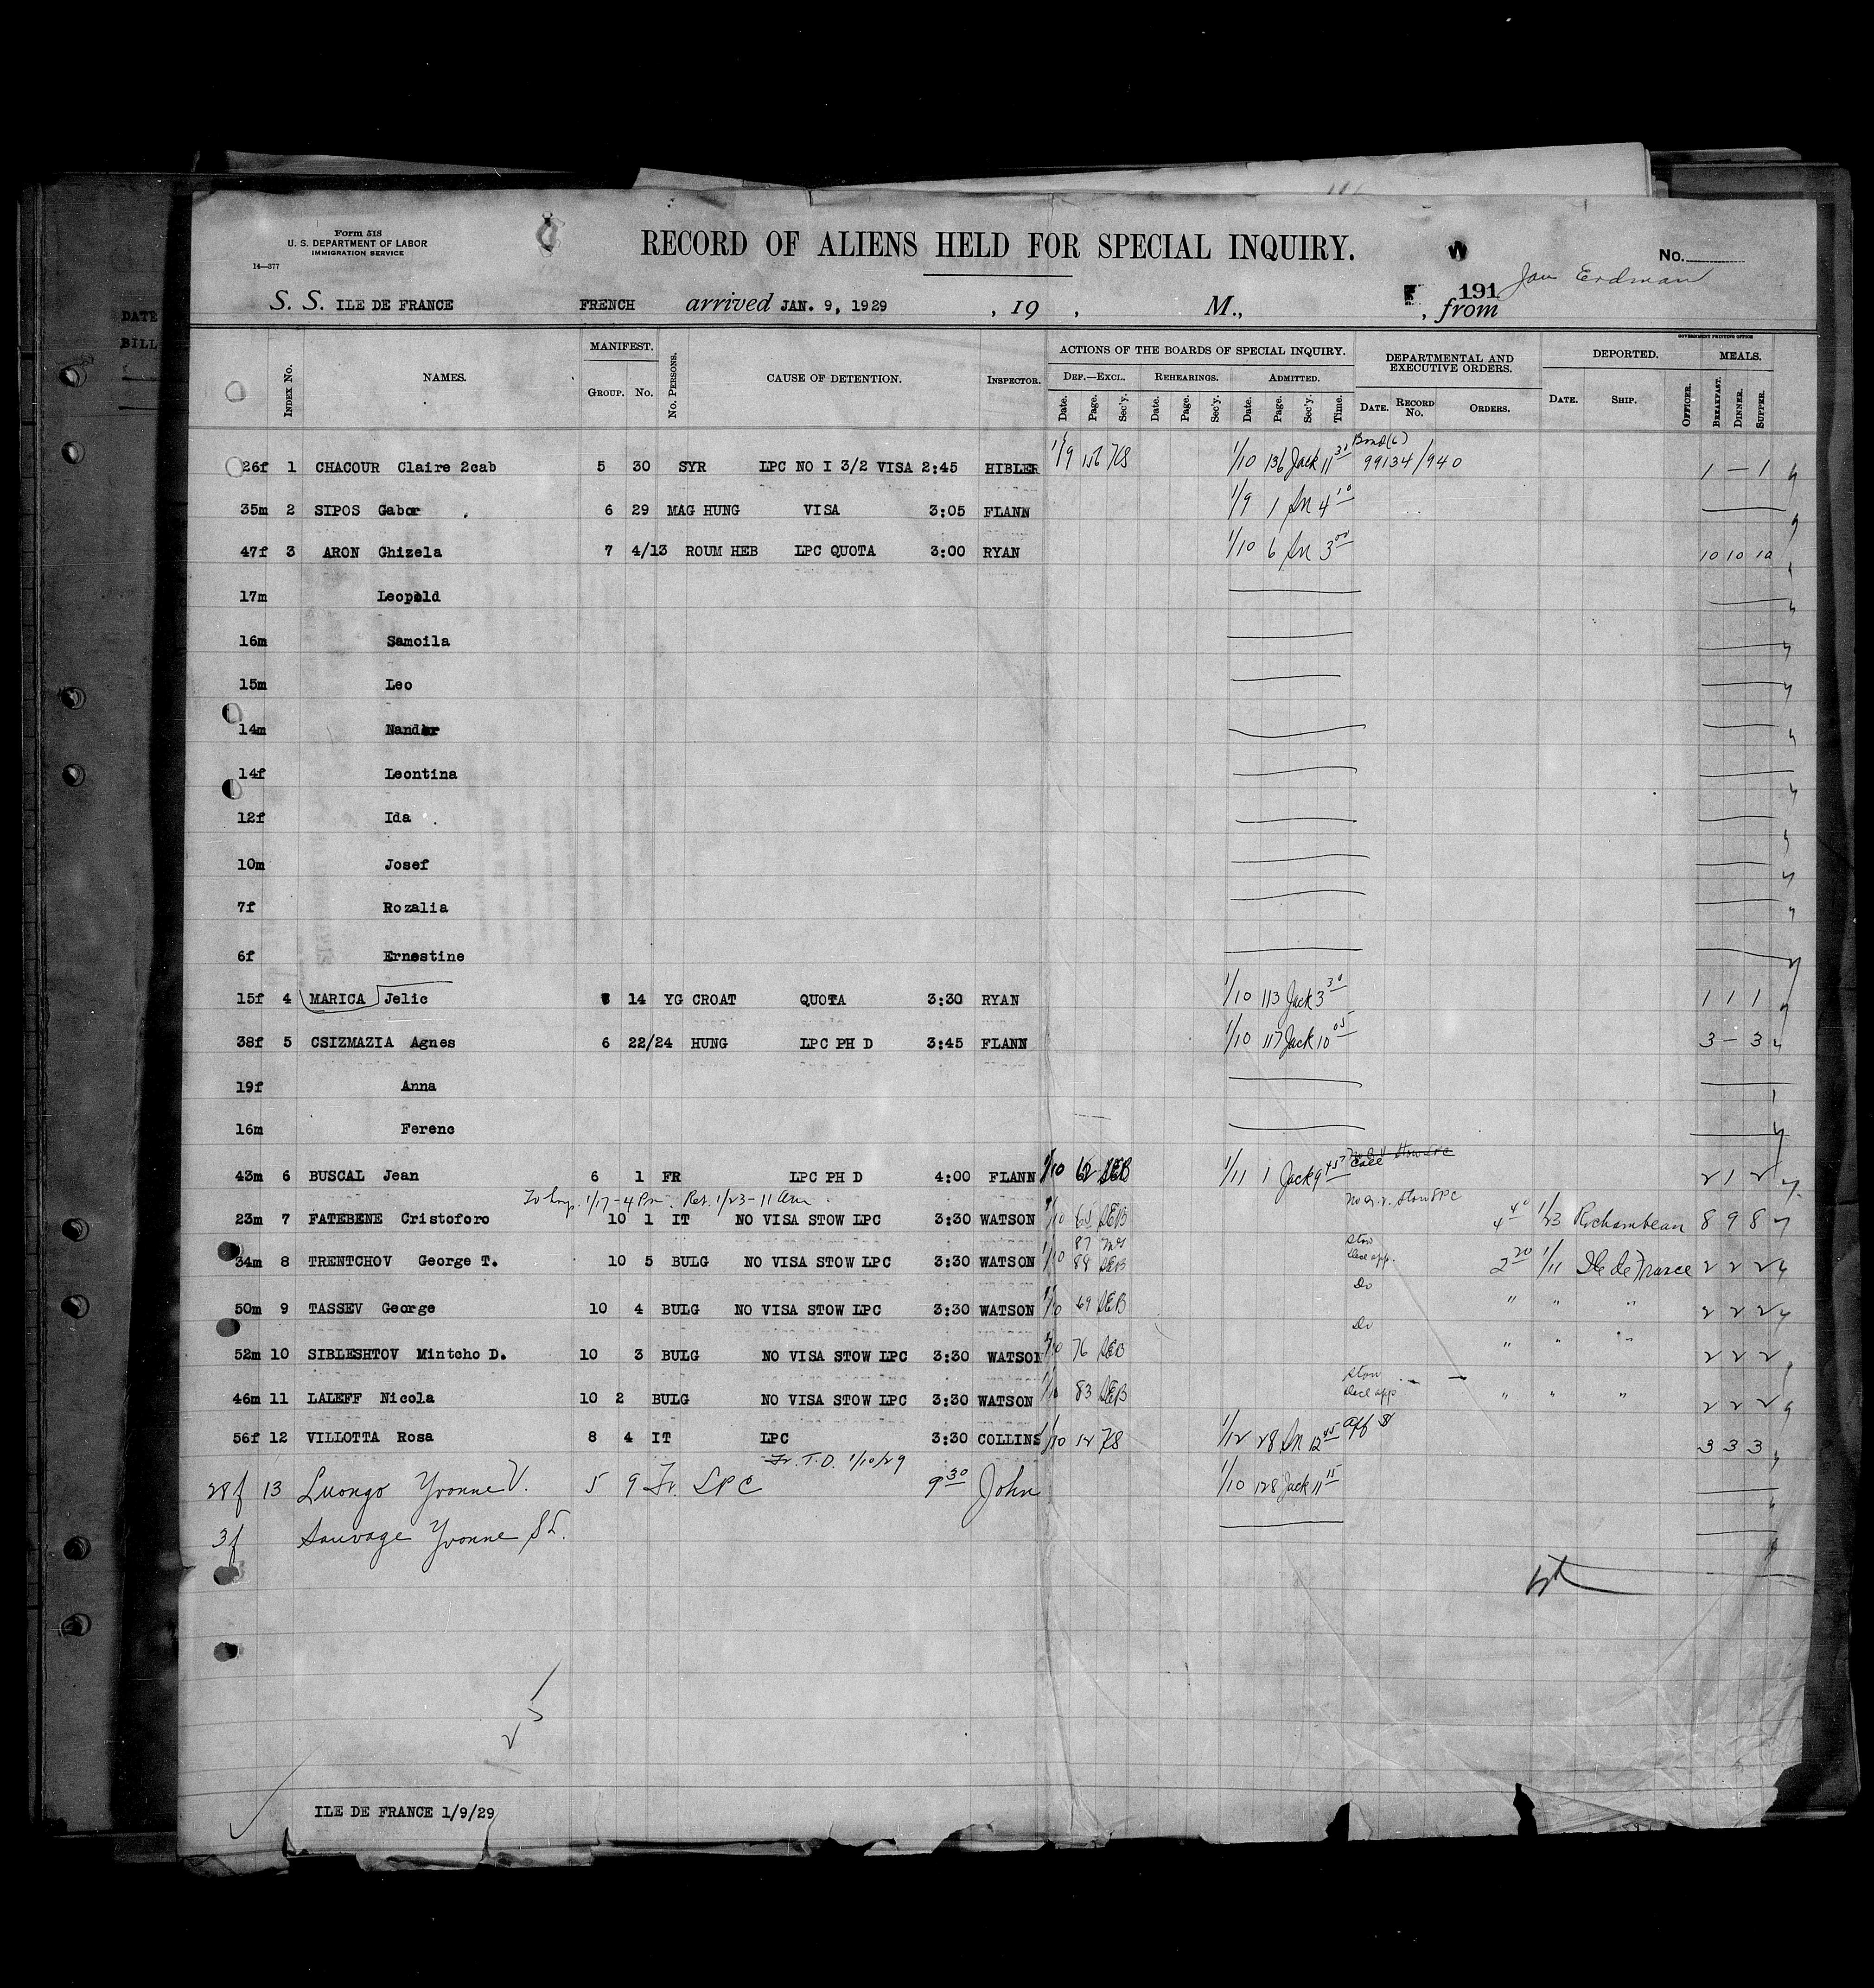 DATE
BILL
Form 518
U. S. DEPARTMENT OF LABOR
IMMIGRATION SERVICE
14—377
RECORD OF ALIENS HELD FOR SPECIAL INQUIRY.
No.
Jan Erdman
191
S. S. ILE DE FRANCE FRENCH arrived JAN. 9, 1929 , 19 , M., , from
GOVERNMENT PRINTING OFFICE
INDEX No. NAMES. MANIFEST. GROUP. No. No. PERSONS. CAUSE OF DETENTION. INSPECTOR. ACTIONS OF THE BOARDS OF SPECIAL INQUIRY. DEPARTMENTAL AND EXECUTIVE ORDERS. DEPORTED. MEALS.
DEF.—EXCL. REHEARINGS. ADMITTED.
Date. Page. Sec'y. Date. Page. Sec'y. Date. Page. Sec'y. Time. DATE. RECORD No. ORDERS. DATE. SHIP. OFFICER. BREAKFAST. DINNER. SUPPER.
Bond (6)
26f 1 CHACOUR Claire 2cab 5 30 SYR LPC NO I 3/2 VISA 2:45 HIBLER 1/9 156 KS 1/10 136 Jack 11 30 99134/940 1 — 1
35m 2 SIPOS Gabor 6 29 MAG HUNG VISA 3:05 FLANN 1/9 1 Sn 4 10
47f 3 ARON Ghizela 7 4/13 ROUM HEB LPC QUOTA 3:00 RYAN 1/10 6 Sn 3 00 10 10 10
17m Leopold
16m Samoila
15m Leo
14m Nandor
14f Leontina
12f Ida
10m Josef
7f Rozalia
6f Ernestine
15f 4 MARICA Jelic 14 YG CROAT QUOTA 3:30 RYAN 1/10 113 Jack 3 30 1 1 1
38f 5 CSIZMAZIA Agnes 6 22/24 HUNG LPC PH D 3:45 FLANN 1/10 117 Jack 10 05 3 — 3
19f Anna
16m Ferenc
43m 6 BUSCAL Jean 6 1 FR LPC PH D 4:00 FLANN 1/10 62 SEB 1/11 1 Jack 9 45 2 1 2
1/17-4 Pm. Ret. 1/23-11 am
No a. v. Stow LPC
23m 7 FATEBENE Cristoforo 10 1 IT NO VISA STOW LPC 3:30 WATSON 1/10 65 SEB 4 40 1/23 Rochambeau 8 9 8
34m 8 TRENTCHOV George T. 10 5 BULG NO VISA STOW LPC 3:30 WATSON 1/10 87 88 SEB Stow Decl app. 2 20 1/11 Ile de France 2 2 2
50m 9 TASSEV George 10 4 BULG NO VISA STOW LPC 3:30 WATSON 1/10 69 SEB Do " " " 2 2 2
52m 10 SIBLESHTOV Mintcho D. 10 3 BULG NO VISA STOW LPC 3:30 WATSON 1/10 76 SEB Do " " " 2 2 2
46m 11 LALEFF Nicola 10 2 BULG NO VISA STOW LPC 3:30 WATSON 1/10 83 SEB Stow Decl app " " " 2 2 2
56f 12 VILLOTTA Rosa 8 4 IT LPC 3:30 COLLINS 1/10 12 KS 1/12 28 Sn 12 45 3 3 3
Fr. T.D. 1/10/29
28f 13 Luongo Yvonne V. 5 9 Fr. LPC 9 30 John 1/10 128 Jack 11 15
3f Sauvage Yvonne
ILE DE FRANCE 1/9/29